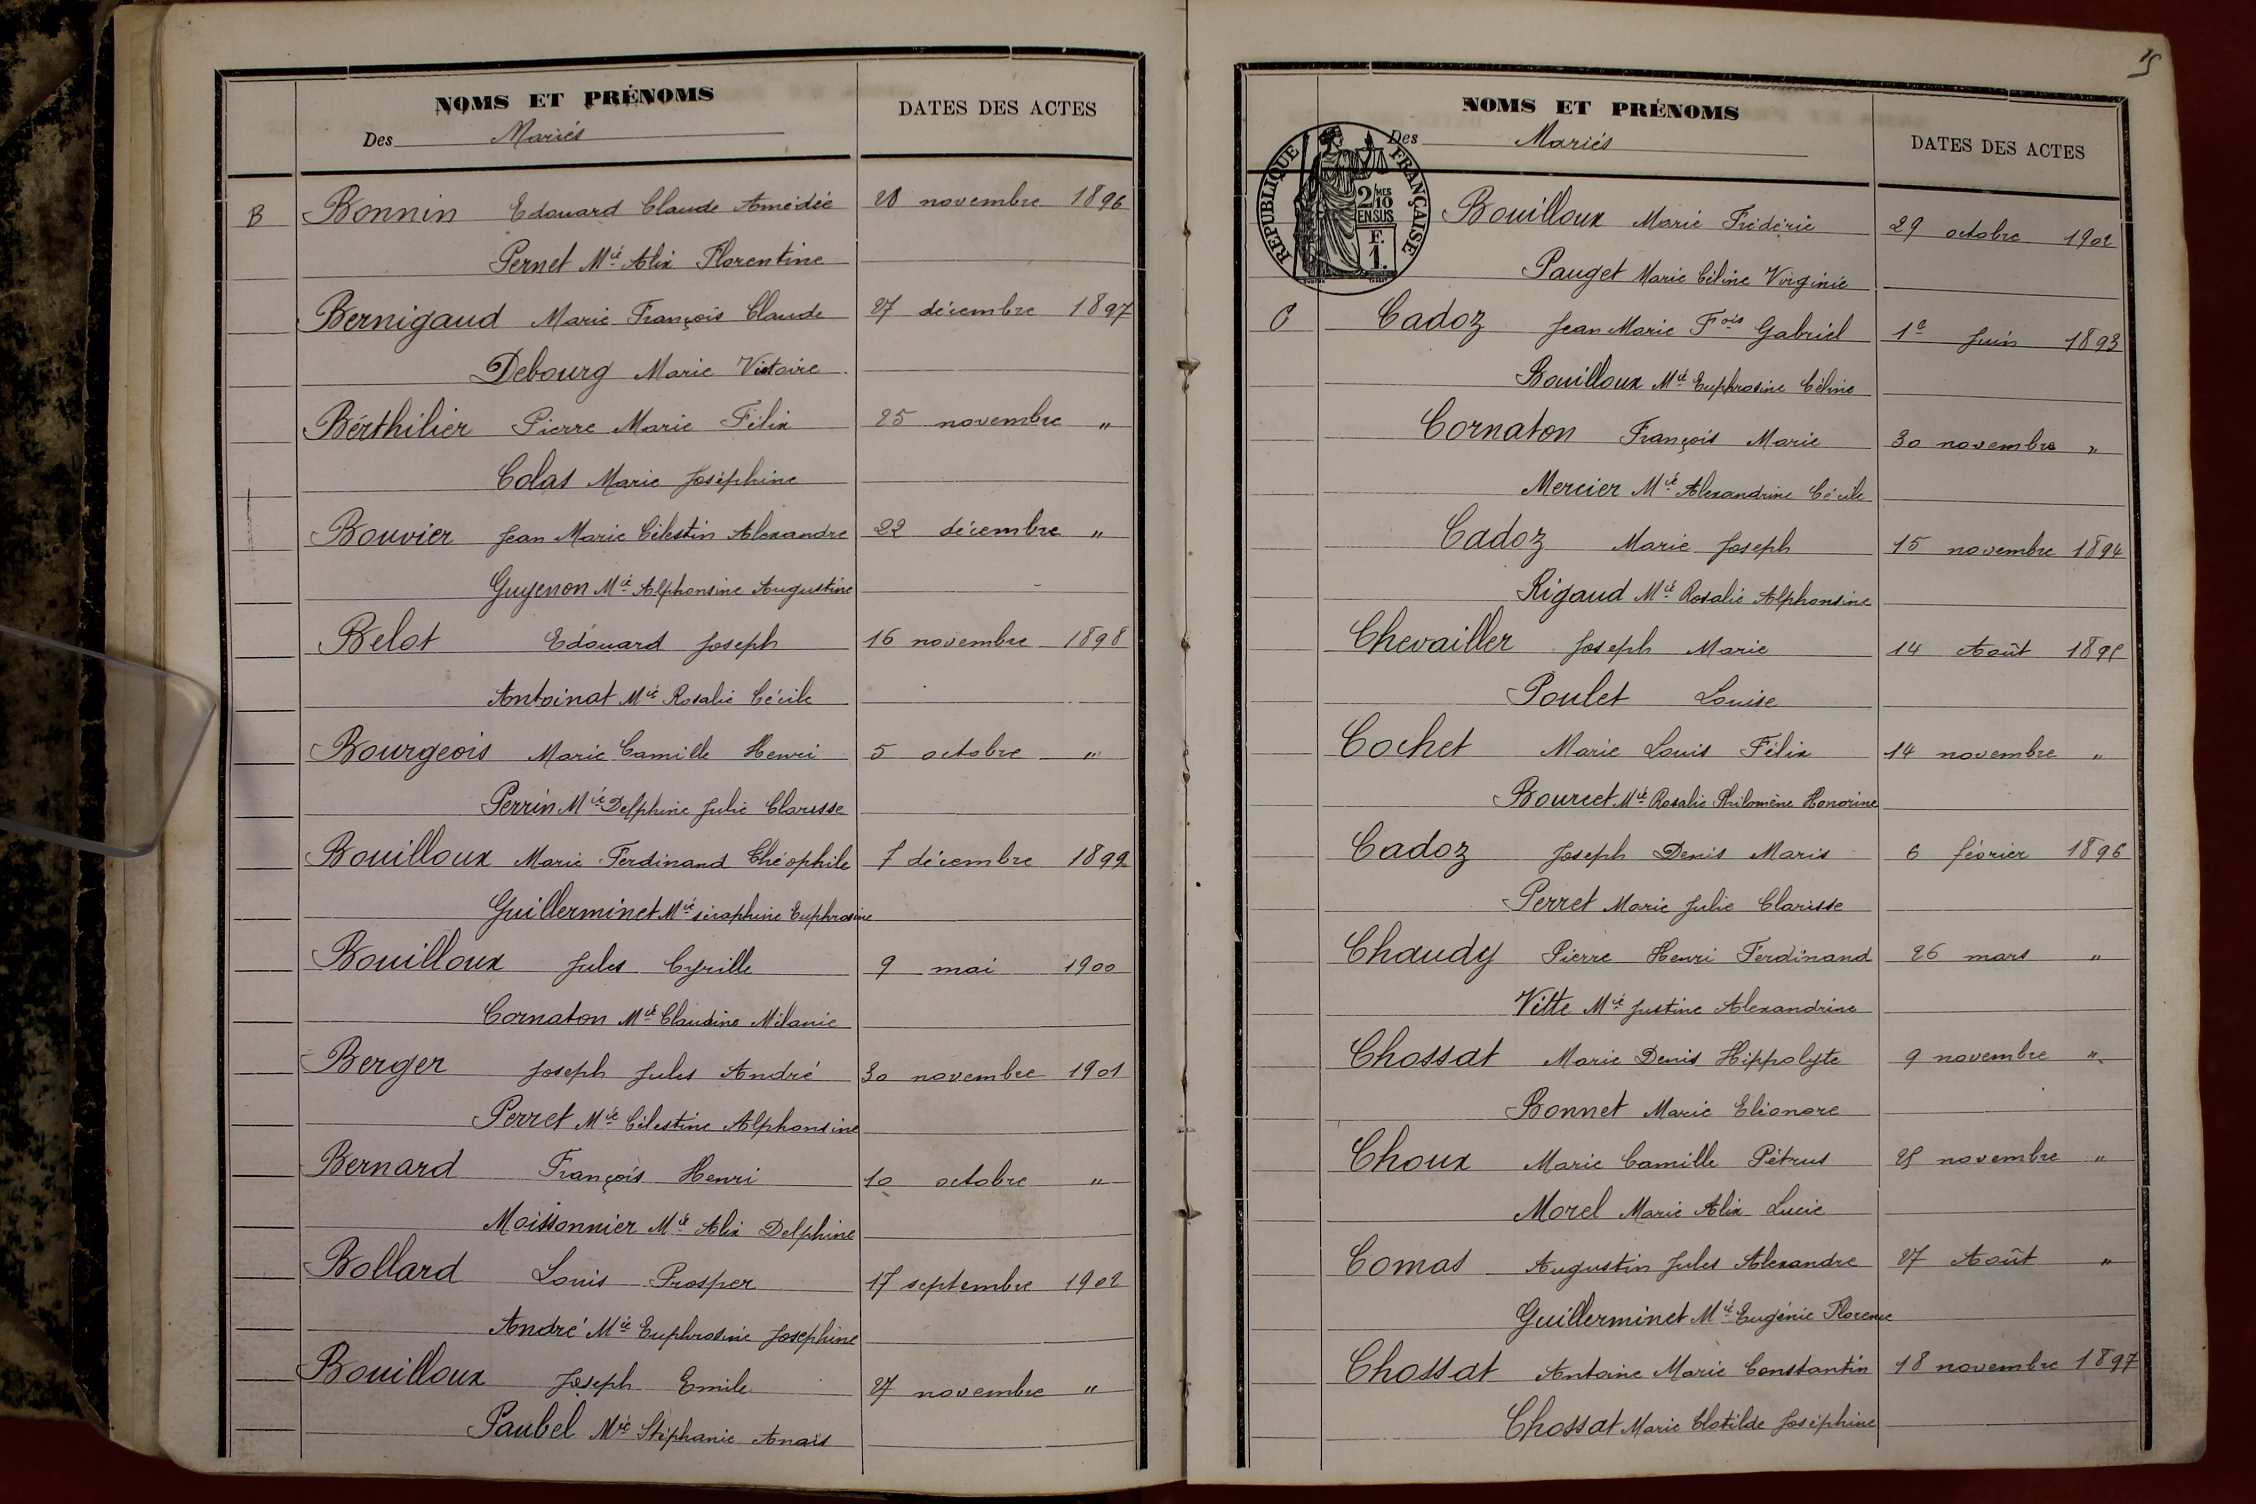 NOMS ET PRÉNOMS
Des Mariés
DATES DES ACTES
B Bonnin Edouard Claude Amédée 20 novembre 1896
Pernet Mie Alix Florentine
Bernigaud Marie François Claude 27 décembre 1897
Debourg Marie Victoire
Bérthilier Pierre Marie Félix 25 novembre "
Colas Marie Joséphine
Bouvier Jean Marie Célestin Alexandre 22 décembre "
Guyenon Mie Alphonsine Augustine
Belot Edouard Joseph 16 novembre 1898
Antoinat Mie Rosalie Cécile
Bourgeois Marie Camille Henri 5 octobre "
Perrin Mie Delphine Julie Clarisse
Bouilloux Marie Ferdinand Théophile 7 décembre 1899
Guillerminet Mie séraphine Euphrosine
Bouilloux Jules Cyrille 9 mai 1900
Cornaton Mie Claudine Mélanie
Berger Joseph Jules André 30 novembre 1901
Perret Mie Célestine Alphonsine
Bernard François Henri 10 octobre "
Moissonnier Mie Alix Delphine
Bollard Louis Prosper 17 septembre 1902
André Mie Euphrosine Joséphine
Bouilloux Joseph Emile 27 novembre "
Paubel Mie Stéphanie Anaïs
NOMS ET PRÉNOMS
Des Mariés
DATES DES ACTES
RÉPUBLIQUE FRANÇAISE
2/10 MES
EN SUS
F.
1.
Bouilloux Marie Frédéric 29 octobre 1902
Pauget Marie Céline Virginie
C Cadoz Jean Marie Fois Gabriel 1e Juin 1893
Bouilloux Mie Euphrosine Céline
Cornaton François Marie 30 novembre "
Mercier Mie Alexandrine Cécile
Cadoz Marie Joseph 15 novembre 1894
Rigaud Mie Rosalie Alphonsine
Chevailler Joseph Marie 14 Août 1895
Poulet Louise
Cochet Marie Louis Félix 14 novembre "
Bourcet Mie Rosalie Philomène Honorine
Cadoz Joseph Denis Marie 6 février 1896
Perret Marie Julie Clarisse
Chaudy Pierre Henri Ferdinand 26 mars "
Vitte Mie Justine Alexandrine
Chossat Marie Denis Hippolyte 9 novembre "
Bonnet Marie Eléonore
Choux Marie Camille Pétrus 25 novembre "
Morel Marie Alix Lucie
Comas Augustin Jules Alexandre 27 Août "
Guillerminet Mie Eugénie Florence
Chossat Antoine Marie Constantin 18 novembre 1897
Chossat Marie Clotilde Joséphine